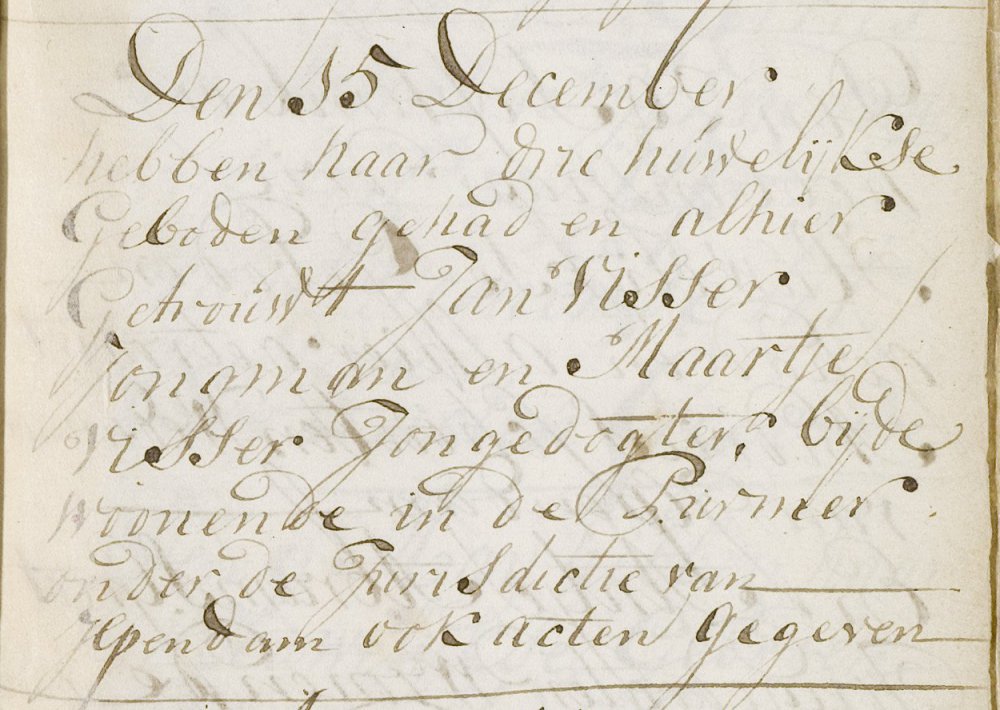 Den 15 December
hebben haar drie húwelijkse
Geboden gehad en alhier
Getroúwt Jan Visser
Jongman en Maartje
Visser Jongedogter, bijde
woonende in de Purmer
onder de Jurisdictie van
Jlpendam ook acten gegeven